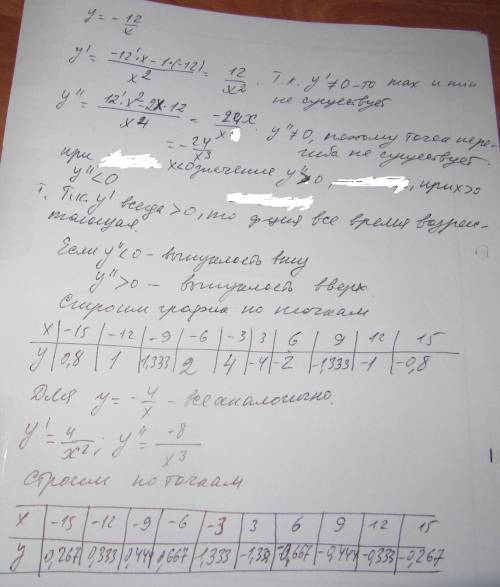 y = - 12/x
y' = (-12'·x - 1·(-12))/x² = 12/x² . Т.к. y' ≠ 0 - то max и min
не существует
y'' = (12'·x² - 2x·12)/x⁴ = -24x/x = -24/x³ y'' ≠ 0, поэтому точек пере-
гиба не существует.
при x<0 значение y''>0, , при x>0
y''<0
Т.к. y' всегда >0, то ф-ция все время возрас-
тающая.
Если y''<0 - выпуклость вниз
y''>0 - выпуклость вверх.
Строим график по точкам
x | -15 | -12 | -9 | -6 | -3 | 3 | 6 | 9 | 12 | 15
y | 0,8 | 1 | 1,333 | 2 | 4 | -4 | -2 | -1,333 | -1 | -0,8
Для y = - 4/x - все аналогично.
y' = 4/x² ; y'' = -8/x³
Строим по точкам
x | -15 | -12 | -9 | -6 | -3 | 3 | 6 | 9 | 12 | 15
y | 0,267 | 0,333 | 0,444 | 0,667 | 1,333 | -1,333 | -0,667 | -0,444 | -0,333 | -0,267